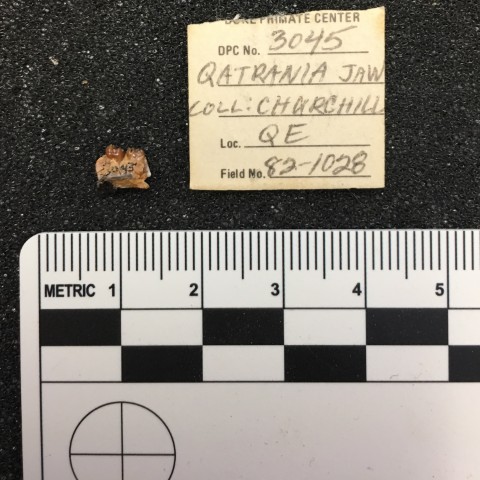 DUKE PRIMATE CENTER
DPC No. 3045
QATRANIA JAW
COLL: CHURCHILL
Loc. QE
Field No. 82-1028
3045
METRIC 1 2 3 4 5